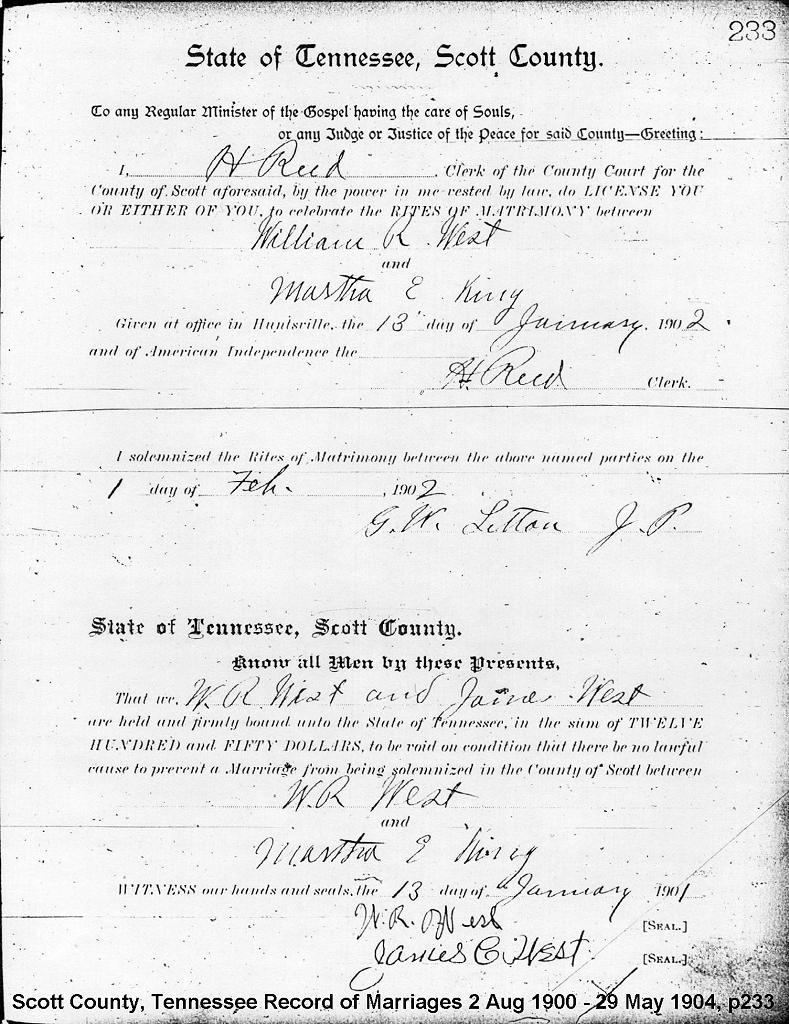 233
State of Tennessee, Scott County.
To any Regular Minister of the Gospel having the care of Souls,
or any Judge or Justice of the Peace for said County—Greeting:
I, H Reed, Clerk of the County Court for the
County of Scott aforesaid, by the power in me vested by law, do LICENSE YOU
OR EITHER OF YOU, to celebrate the RITES OF MATRIMONY between
William R West
and
Martha E King
Given at office in Huntsville, the 13 day of January, 1902.
and of American Independence the
H. Reed Clerk.
I solemnized the Rites of Matrimony between the above named parties on the
1 day of Feb. , 1902
G. W. Litton J. P.
State of Tennessee, Scott County.
Know all Men by these Presents,
That we, W. R. West and James West
are held and firmly bound unto the State of Tennessee, in the sum of TWELVE
HUNDRED and FIFTY DOLLARS, to be void on condition that there be no lawful
cause to prevent a Marriage from being solemnized in the County of Scott between
W. R West
and
Martha E King
WITNESS our hands and seals, the 13 day of January 1901
W. R. West [SEAL.]
James C. West [SEAL.]
Scott County, Tennessee Record of Marriages 2 Aug 1900 - 29 May 1904, p233